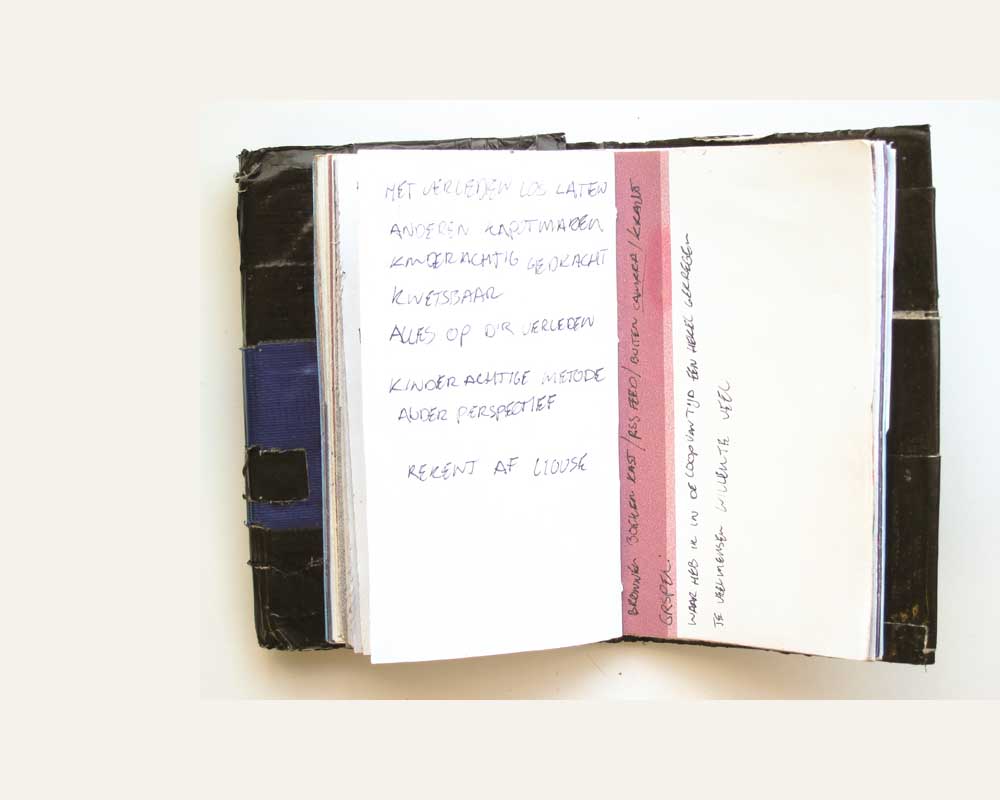 HET VERLEDEN LOS LATEN
ANDEREN KAPOTMAKEN
KINDERACHTIG GEDRACHT
KWETSBAAR
ALLES OP D'R VERLEDEN
KINDERACHTIGE METODE
ANDER PERSPECTIEF
REKENT AF
BRONNEN BOEKEN KAST/RSS FEED/BUITEN CAMERA/KRANT
WAAR HEB IK IN DE LOOP VAN TIJD EEN HEKEL GEKREGEN
TE VEEL MENSEN WILLEN TE VEEL